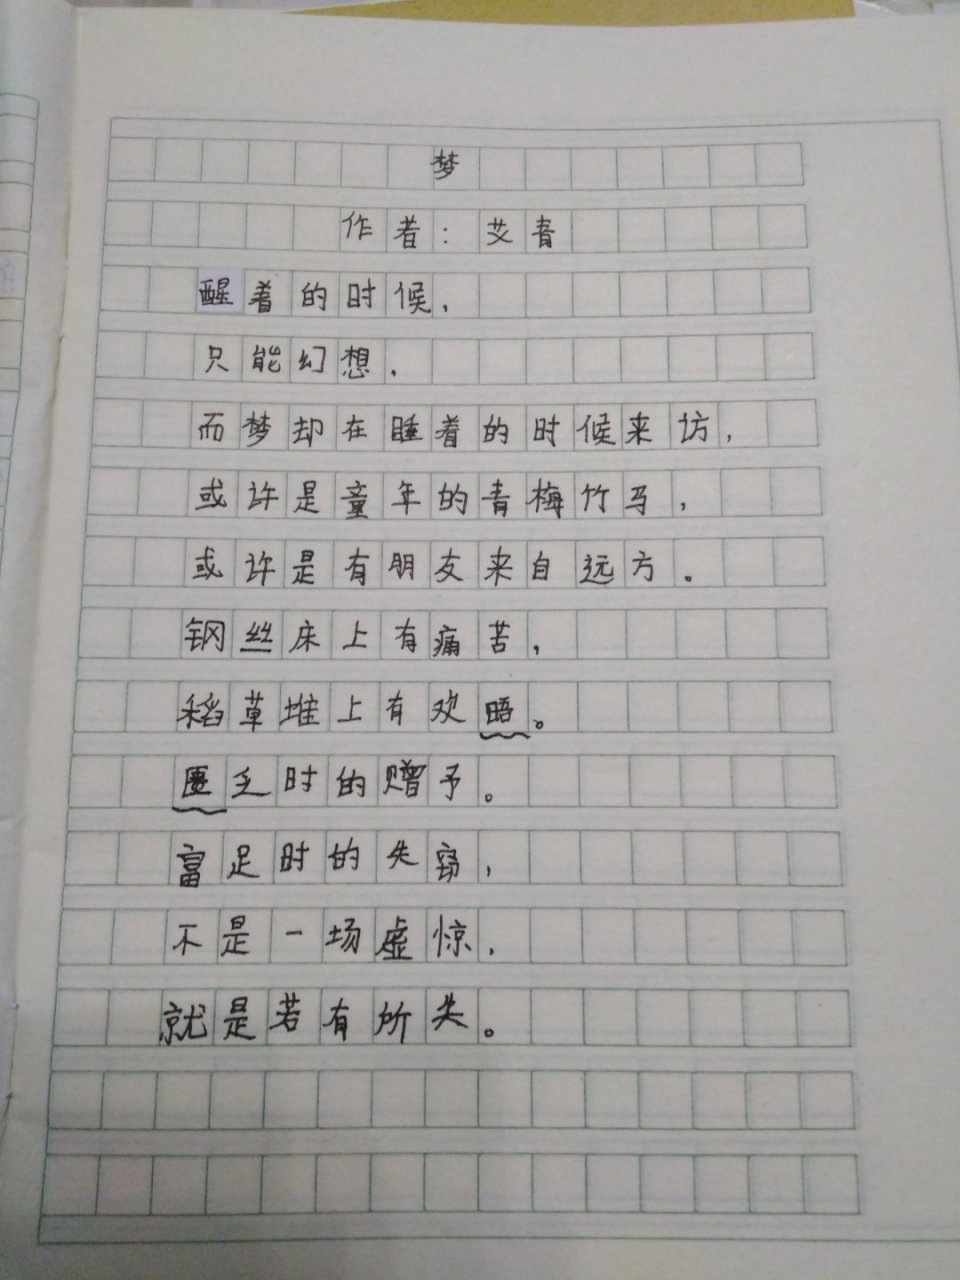 梦
作者：艾青
醒着的时候，
只能幻想，
而梦却在睡着的时候来访，
或许是童年的青梅竹马，
或许是有朋友来自远方。
钢丝床上有痛苦，
稻草堆上有欢晤。
匮乏时的赠予。
富足时的失窃，
不是一场虚惊，
就是若有所失。